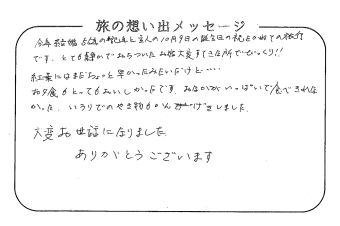 旅の想い出メッセージ
今年結婚5周年の記念と主人の10月9日の誕生日の祝をかねての旅行
です。とても静かでおちついたお宿大変すてきな所でびっくり!!
紅葉にはまだちょっと早かったみたいだけど…
お夕食もとってもおいしかったです。おなかがいっぱいで食べきれな
かった。いろりでのやき物もかんげきしました。
大変お世話になりました
ありがとうございます